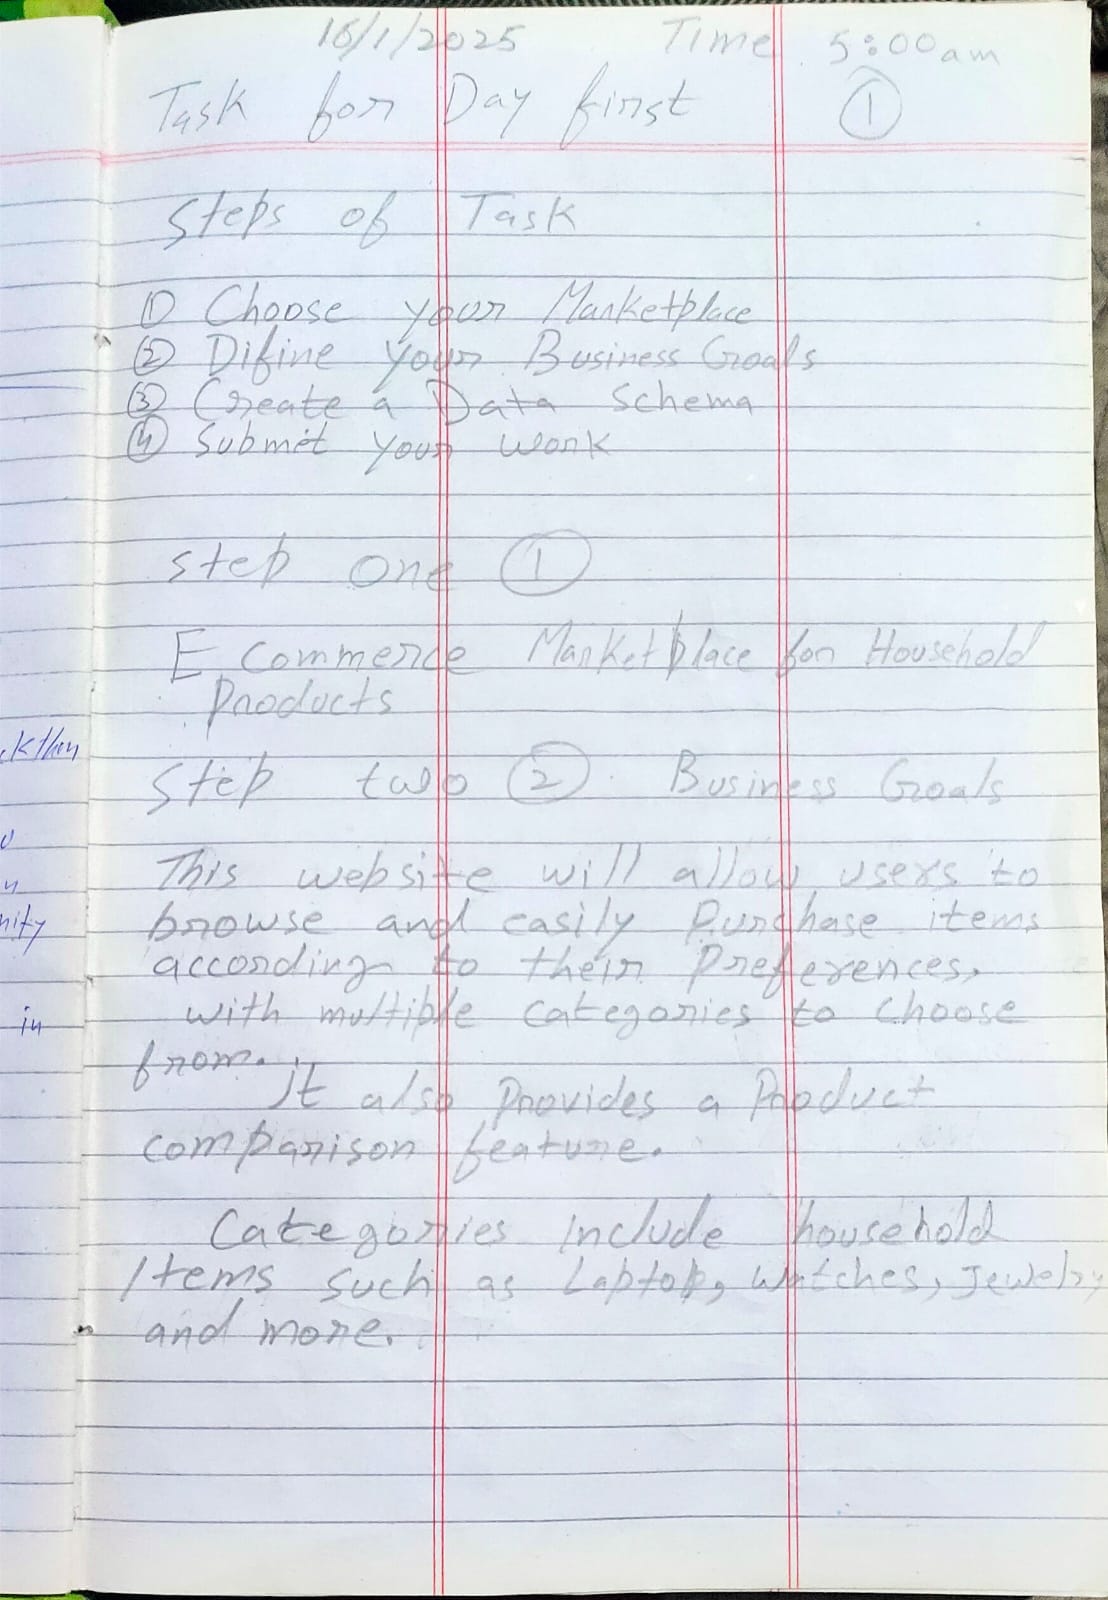 16/1/2025 Time 5:00am
Task for Day first 1
Steps of Task
1 Choose your Marketplace
2 Difine your Business Goals
3 Create a Data Schema
4 Submit your work
Step one 1
E commerce Marketplace for Household
Products
Step two 2 Business Goals
This website will allow users to
browse and easily Purchase items
according to their Preferences,
with multiple categories to choose
from.
It also Provides a Product
comparison feature.
Categories Include household
Items such as Laptop, watches, Jewelry
and more.
nity
in